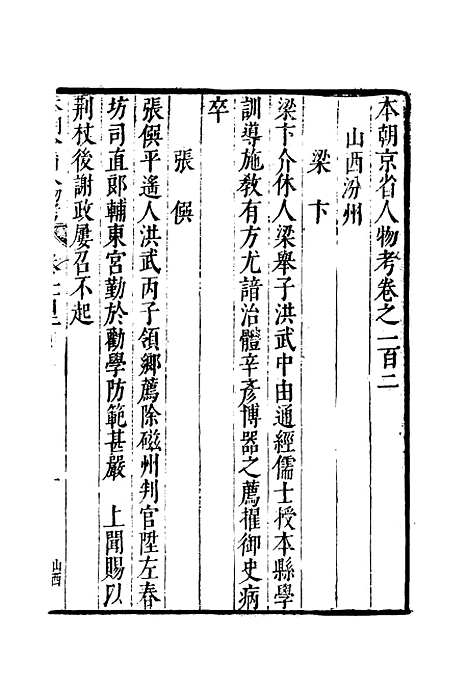 本朝京省人物考卷之一百二
山西汾州
梁卞
梁卞介休人梁舉子洪武中由通經儒士授本縣學
訓導施教有方尤諳治體辛彥博器之薦擢御史病
卒
張僎
張僎平遙人洪武丙子領鄉薦除磁州判官陞左春
坊司直郎輔東宮勤於勸學防範甚嚴　上聞賜以
荆杖後謝政屢召不起
山西